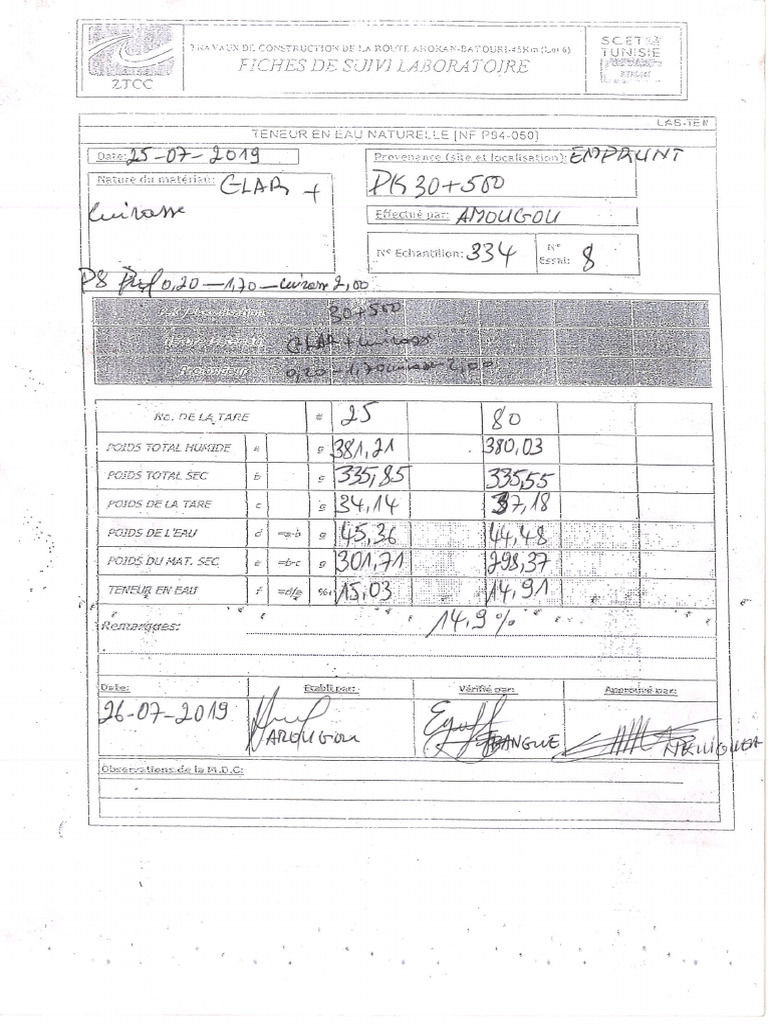 TRAVAUX DE CONSTRUCTION DE LA ROUTE AKOKAN-BATOURI-45Km (Lot 6)
SCET
TUNISIE
FICHES DE SUIVI LABORATOIRE
2TCC
LAB-TEN
TENEUR EN EAU NATURELLE [NF P94-050]
Date: 25-07-2019
Provenance (site et localisation): EMPRUNT
PK 30+500
Nature du matériau: GLAR +
cuirasse
Effectué par: AMOUGOU
N° Echantillon: 334
N° Essai: 8
P8 Prof 0,20 — 1,70 — cuirasse 2,00
30+500
GLAR + cuirasse
Profondeur 0,20 - 1,70 cuirasse 2,00
No. DE LA TARE # 25 80
POIDS TOTAL HUMIDE a g 381,21 380,03
POIDS TOTAL SEC b g 335,85 335,55
POIDS DE LA TARE c g 34,14 37,18
POIDS DE L'EAU d =a-b g 45,36 44,48
POIDS DU MAT. SEC e =b-c g 301,71 298,37
TENEUR EN EAU f =d/e % 15,03 14,91
Remarques: 14,9 %
Date: Etabli par: Vérifié par: Approuvé par:
26-07-2019 AMOUGOU
Observations de la M.D.C: